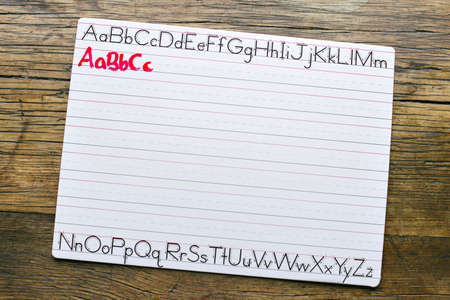 AaBbCcDdEeFfGgHhIiJjKkLlMm
AaBbCc
NnOoPpQqRrSsTtUuVvWwXxYyZz